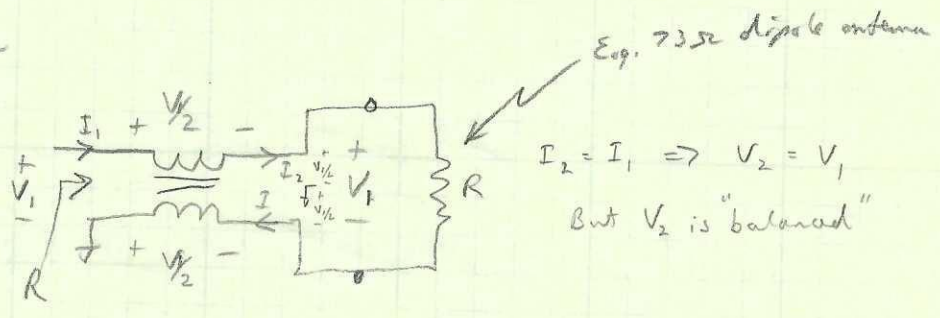 E.g. 73Ω dipole antenna
V₁/2
I₁ + -
+ I₂ + V₁/2 - +
V₁ V₁ R
- I + V₁/2 - -
+ V₁/2 -
R
I₂ = I₁ => V₂ = V₁
But V₂ is "balanced"